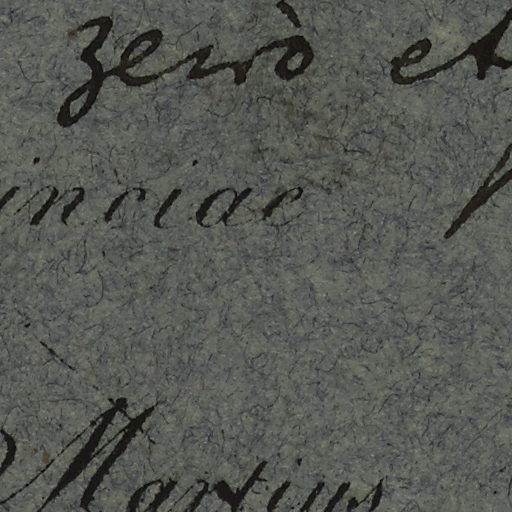 zerrò et
inciae
Martius